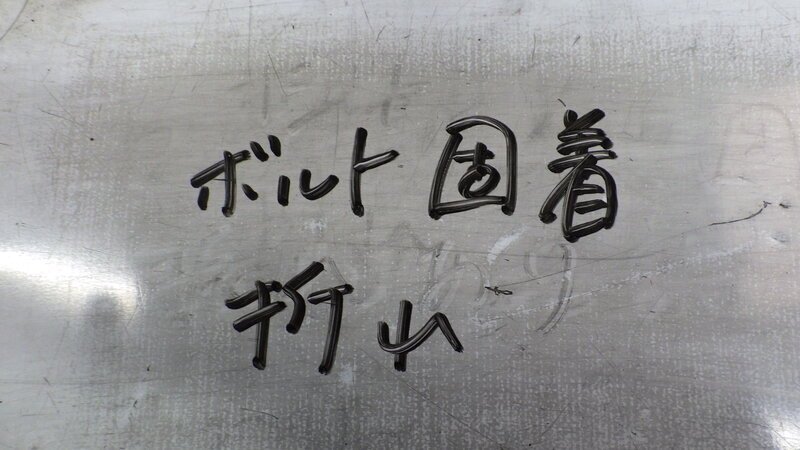 ボルト固着
折れ